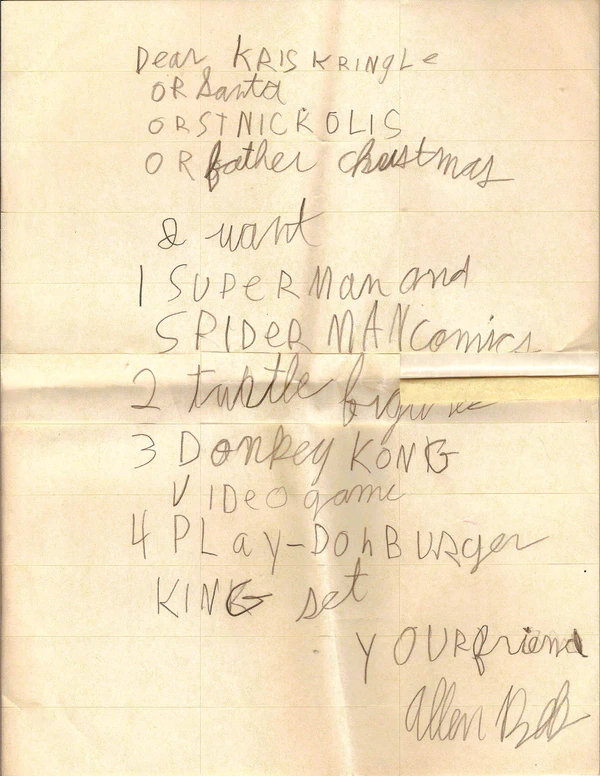 Dear KRIS KRINGLe
OR Santa
OR ST NICKOLIS
OR father christmas
I want
1 SUPeRMan and
SPIDeR MAN comics
2 turtle figures
3 Donkey KONG
VIDeo game
4 PLay-DohBURger
KING set
YOURfriend
Allen